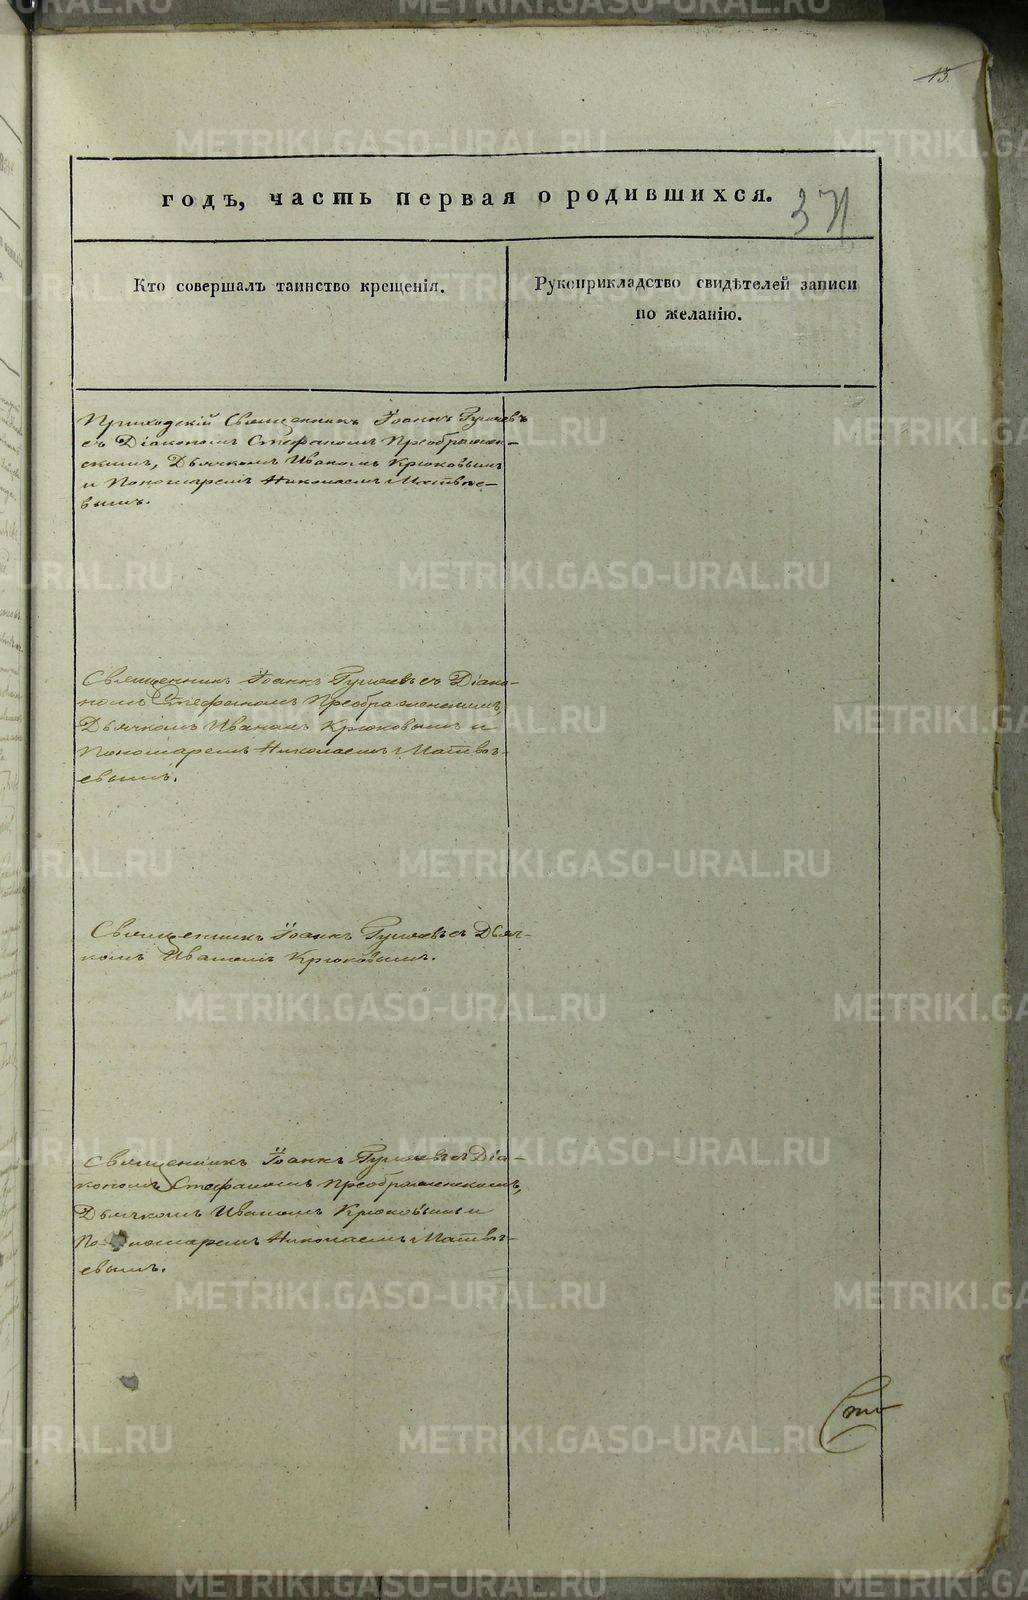 13.
годъ, часть первая о родившихся.
371
Кто совершалъ таинство крещенія.
Рукоприкладство свидѣтелей записи
по желанію.
Приходскій Священникъ Іоаннъ
съ Діакономъ Стефаномъ Преображен-
скимъ, Дьячкомъ Иваномъ Крюковымъ
и Пономаремъ Николаемъ Матвѣе-
вымъ.
Священникъ Іоаннъ съ Діако-
номъ Стефаномъ Преображенскимъ,
Дьячкомъ Иваномъ Крюковымъ и
Пономаремъ Николаемъ Матвѣ-
евымъ.
Священникъ Іоаннъ съ Дьяч-
комъ Иваномъ Крюковымъ.
Священникъ Іоаннъ съ Діа-
кономъ Стефаномъ Преображенскимъ,
Дьячкомъ Иваномъ Крюковымъ и
По-номаремъ Николаемъ Матвѣ-
евымъ.
METRIKI.GASO-URAL.RU